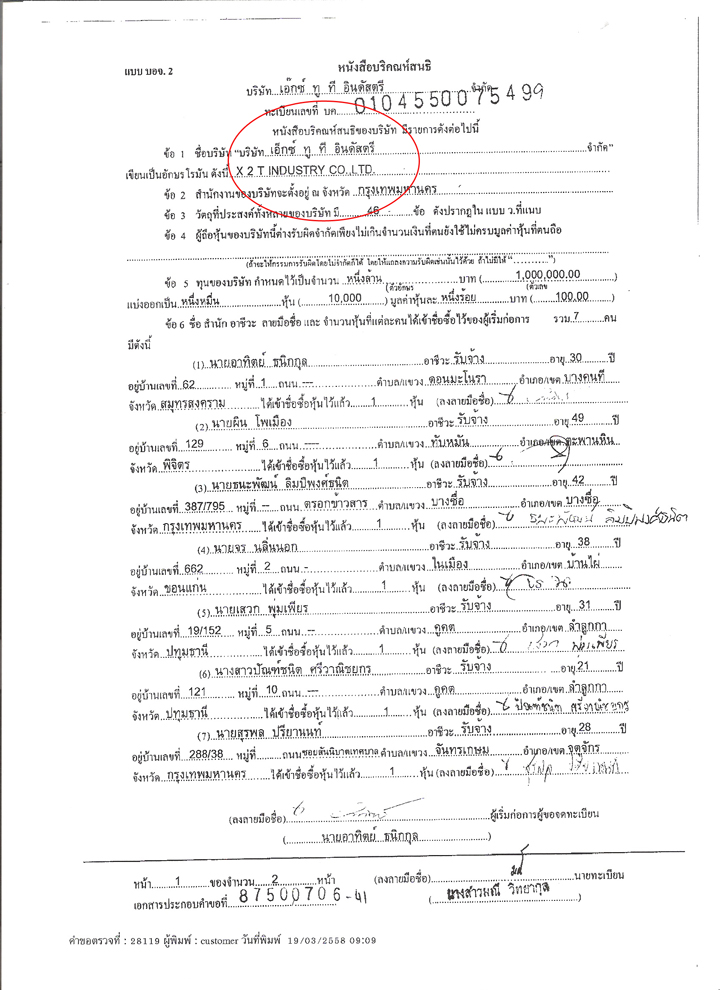 แบบ บอจ. 2
หนังสือบริคณห์สนธิ
บริษัท เอ๊กซ์ ทู ที อินดัสตรี จำกัด
ทะเบียนเลขที่ บค. 0104550075499
หนังสือบริคณห์สนธิของบริษัท มีรายการดังต่อไปนี้
ข้อ 1 ชื่อบริษัท "บริษัท เอ๊กซ์ ทู ที อินดัสตรี จำกัด"
เขียนเป็นอักษรโรมัน ดังนี้ X 2 T INDUSTRY CO.,LTD.
ข้อ 2 สำนักงานของบริษัทจะตั้งอยู่ ณ จังหวัด กรุงเทพมหานคร
ข้อ 3 วัตถุที่ประสงค์ทั้งหลายของบริษัท มี 46 ข้อ ดังปรากฏใน แบบ ว.ที่แนบ
ข้อ 4 ผู้ถือหุ้นของบริษัทนี้ต่างรับผิดจำกัดเพียงไม่เกินจำนวนเงินที่ตนยังใช้ไม่ครบมูลค่าหุ้นที่ตนถือ
(ถ้าจะให้กรรมการรับผิดโดยไม่จำกัดก็ได้ โดยให้แถลงความรับผิดเช่นนั้นไว้ด้วย ถ้าไม่มีให้ "..........")
ข้อ 5 ทุนของบริษัท กำหนดไว้เป็นจำนวน หนึ่งล้าน บาท ( 1,000,000.00 )
(ตัวอักษร) (ตัวเลข)
แบ่งออกเป็น หนึ่งหมื่น หุ้น ( 10,000 ) มูลค่าหุ้นละ หนึ่งร้อย บาท ( 100.00 )
ข้อ 6 ชื่อ สำนัก อาชีวะ ลายมือชื่อ และ จำนวนหุ้นที่แต่ละคนได้เข้าชื่อซื้อไว้ของผู้เริ่มก่อการ รวม 7 คน
มีดังนี้
(1) นายอาทิตย์ ธนิกกุล อาชีวะ รับจ้าง อายุ 30 ปี
อยู่บ้านเลขที่ 62 หมู่ที่ 1 ถนน --- ตำบล/แขวง ดอนมะโนรา อำเภอ/เขต บางคนที
จังหวัด สมุทรสงคราม ได้เข้าชื่อซื้อหุ้นไว้แล้ว 1 หุ้น (ลงลายมือชื่อ)
(2) นายผิน โพเมือง อาชีวะ รับจ้าง อายุ 49 ปี
อยู่บ้านเลขที่ 129 หมู่ที่ 6 ถนน --- ตำบล/แขวง ทับหมัน อำเภอ/เขต ตะพานหิน
จังหวัด พิจิตร ได้เข้าชื่อซื้อหุ้นไว้แล้ว 1 หุ้น (ลงลายมือชื่อ)
(3) นายธนะพัฒน์ ลิมปิพงศ์ธนิต อาชีวะ รับจ้าง อายุ 42 ปี
อยู่บ้านเลขที่ 387/795 หมู่ที่ -- ถนน ตรอกข้าวสาร ตำบล/แขวง บางซื่อ อำเภอ/เขต บางซื่อ
จังหวัด กรุงเทพมหานคร ได้เข้าชื่อซื้อหุ้นไว้แล้ว 1 หุ้น (ลงลายมือชื่อ) ธนะพัฒน์ ลิมปิพงศ์ธนิต
(4) นายจร นลิ่นนอก อาชีวะ รับจ้าง อายุ 38 ปี
อยู่บ้านเลขที่ 662 หมู่ที่ 2 ถนน - ตำบล/แขวง ในเมือง อำเภอ/เขต บ้านไผ่
จังหวัด ขอนแก่น ได้เข้าชื่อซื้อหุ้นไว้แล้ว 1 หุ้น (ลงลายมือชื่อ)
(5) นายเสวก พุ่มเพียร อาชีวะ รับจ้าง อายุ 31 ปี
อยู่บ้านเลขที่ 19/152 หมู่ที่ 5 ถนน -- ตำบล/แขวง คูคต อำเภอ/เขต ลำลูกกา
จังหวัด ปทุมธานี ได้เข้าชื่อซื้อหุ้นไว้แล้ว 1 หุ้น (ลงลายมือชื่อ) เสวก พุ่มเพียร
(6) นางสาวปัณฑ์ชนิต ศรีวาณิชยกร อาชีวะ รับจ้าง อายุ 21 ปี
อยู่บ้านเลขที่ 121 หมู่ที่ 10 ถนน --- ตำบล/แขวง คูคต อำเภอ/เขต ลำลูกกา
จังหวัด ปทุมธานี ได้เข้าชื่อซื้อหุ้นไว้แล้ว 1 หุ้น (ลงลายมือชื่อ) ปัณฑ์ชนิต ศรีวาณิชยกร
(7) นายสุรพล ปรียานนท์ อาชีวะ รับจ้าง อายุ 28 ปี
อยู่บ้านเลขที่ 288/38 หมู่ที่ ถนน ซอยสันนิบาตเทศบาล ตำบล/แขวง จันทรเกษม อำเภอ/เขต จตุจักร
จังหวัด กรุงเทพมหานคร ได้เข้าชื่อซื้อหุ้นไว้แล้ว 1 หุ้น (ลงลายมือชื่อ)
(ลงลายมือชื่อ) ผู้เริ่มก่อการผู้ขอจดทะเบียน
( นายอาทิตย์ ธนิกกุล )
หน้า 1 ของจำนวน 2 หน้า (ลงลายมือชื่อ) นายทะเบียน
เอกสารประกอบคำขอที่ 87500706-41 (นางสาวมณี วิทยากุล)
คำขอตรวจที่ : 28119 ผู้พิมพ์ : customer วันที่พิมพ์ 19/03/2558 09:09